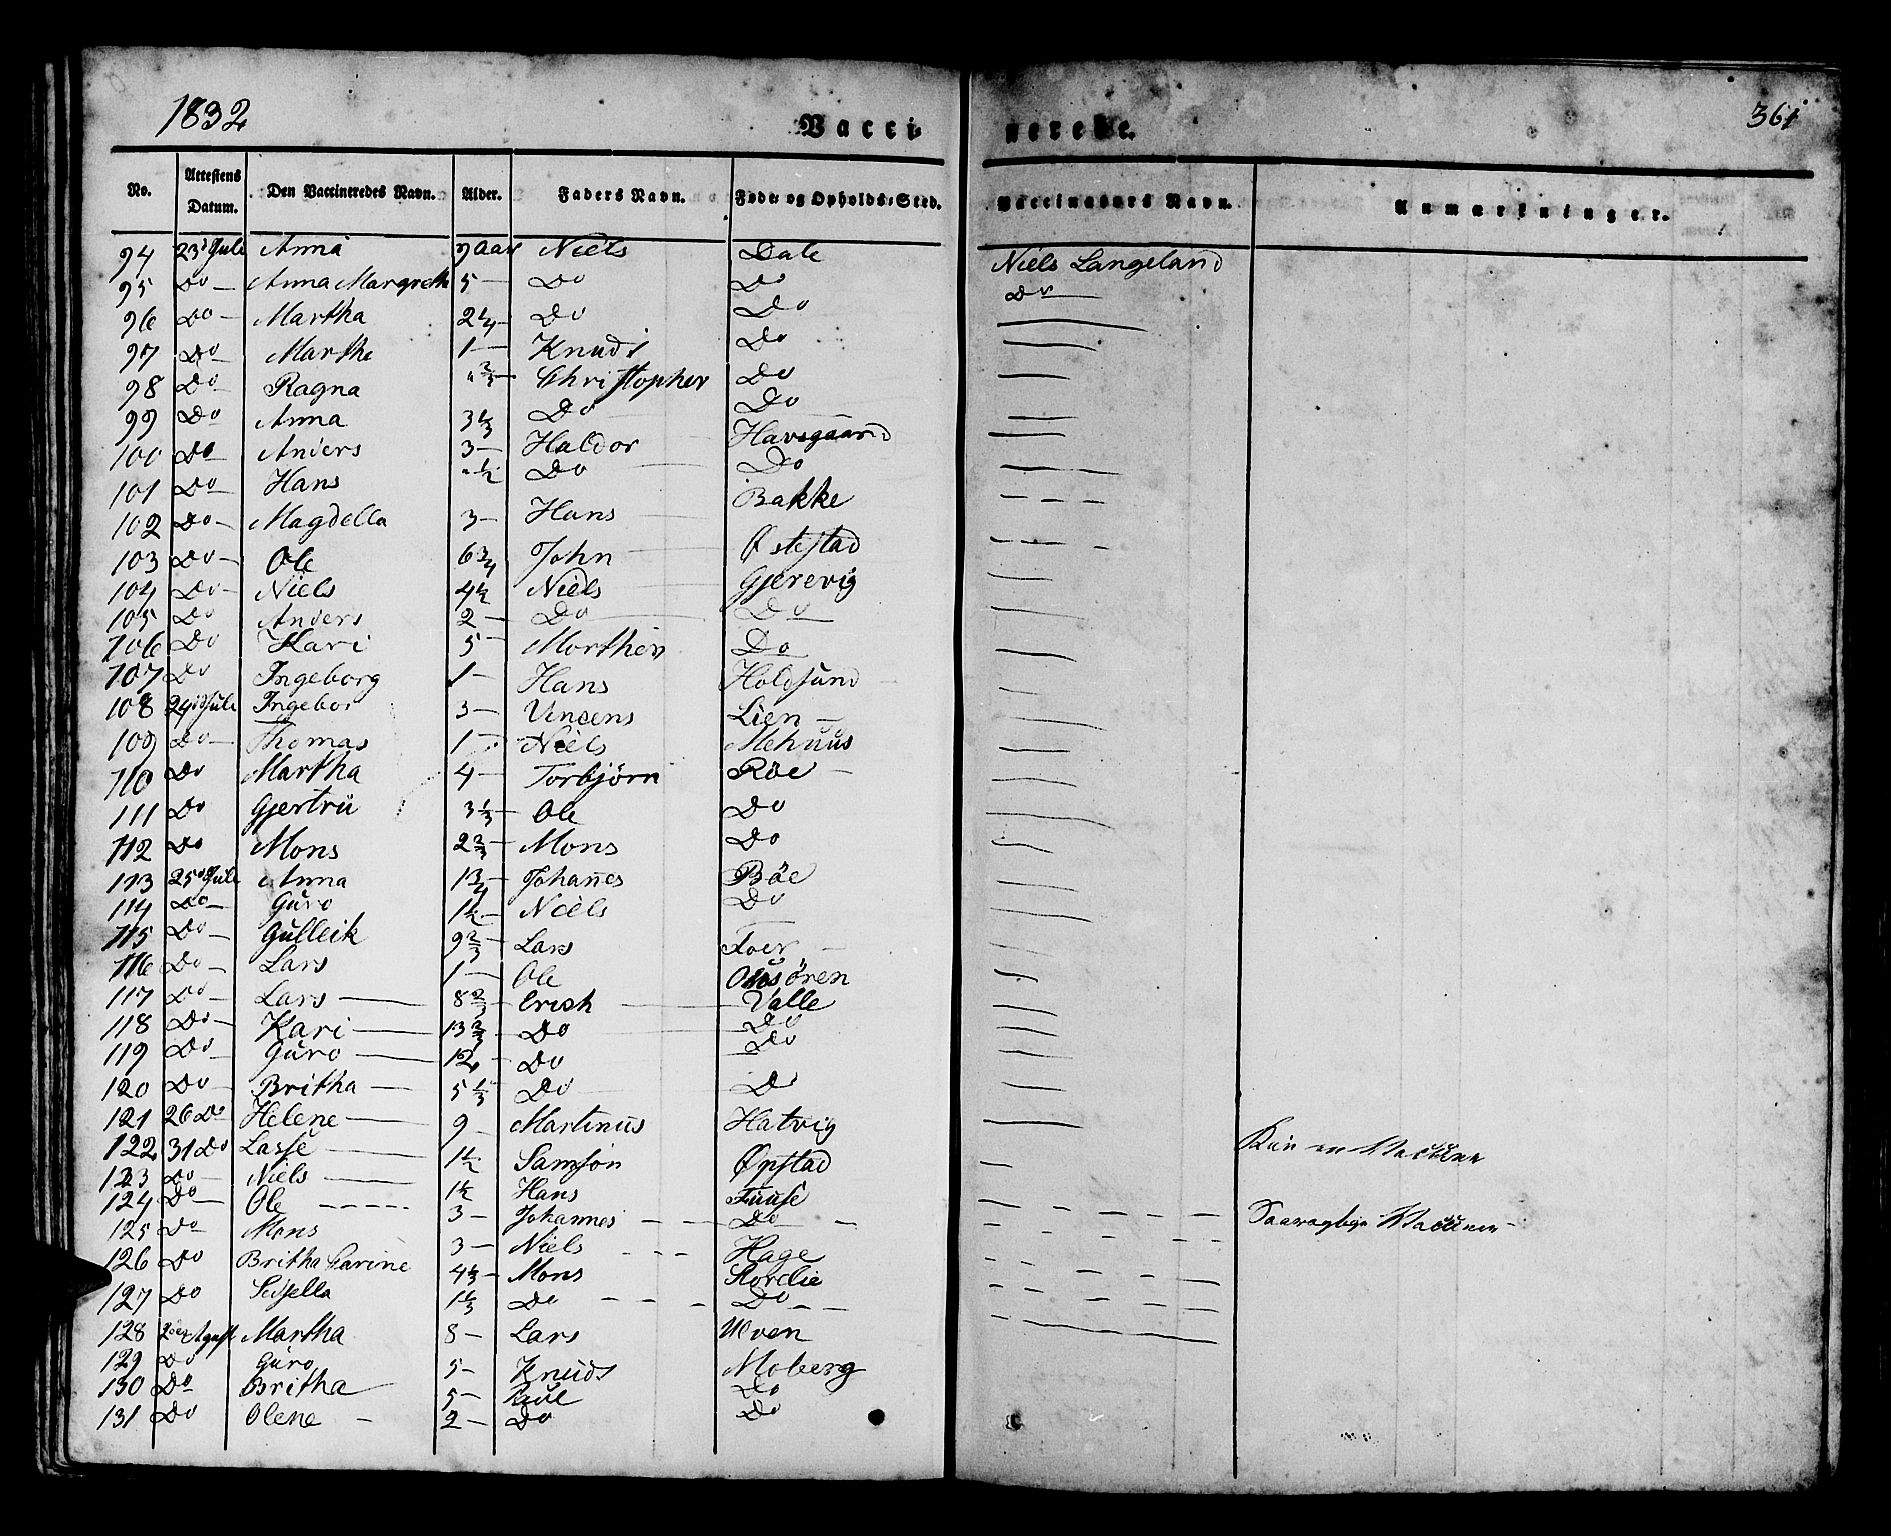 1832
Vaccinerede.
361
No. Attestens Datum. Den Vaccineredes Navn. Alder. Faders Navn. Føde- og Opholds-Sted. Vaccinateurs Navn. Anmærkninger.
94 23d Juli Anna 9 Aar Niels Dale Niels Langeland
95 Do Anna Margreth 5 Do Do Do
96 Do Martha 2 1/4 Do Do
97 Do Martha 1 Knuds Do
98 Do Ragna " 2/3 Christopher Do
99 Do Anna 3 1/3 Do Do
100 Do Anders 3 Haldor Havsgaard
101 Do Hans " 1/2 Do Do
102 Do Magdella 3 Hans Bakke
103 Do Ole 6 3/4 John Østestad
104 Do Niels 4 1/2 Niels Gjerevig
105 Do Anders 2 Do Do
106 Do Kari 5 Morthen Do
107 Do Ingeborg 1 Hans Holdsund
108 24d Juli Ingebor 3 Vincens Lien
109 Do Thomas 1 Niels Mehuus
110 Do Martha 4 Torbjörn Röe
111 Do Gjertru 3 1/3 Ole Do
112 Do Mons 2 2/3 Mons Do
113 25d Juli Anna 1 3/4 Johannes Böe
114 Do Guro 1 1/2 Niels Do
115 Do Gulleik 9 2/3 Lars
116 Do Lars 1 Ole
117 Do Lars 8 2/3 Erich Valle
118 Do Kari 13 2/3 Do Do
119 Do Guro 12 Do Do
120 Do Britha 5 1/3 Do Do
121 26 Do Helene 9 Martinus Hatvig
122 31 Do Lasse 1 1/2 Samson Øpstad Kun en Vaccine
123 Do Niels 1 1/2 Hans Tuuse
124 Do Ole 3 Johannes Do
125 Do Mons 3 Niels Hage
126 Do Britha Carine 4 1/3 Mons
127 Do Sidsella 1 1/3 Do Do
128 2den Agust Martha 8 Lars Ulven
129 Do Guro 5 Knuds Moberg
130 Do Britha 5 Do
131 Do Olene 2 Do Do